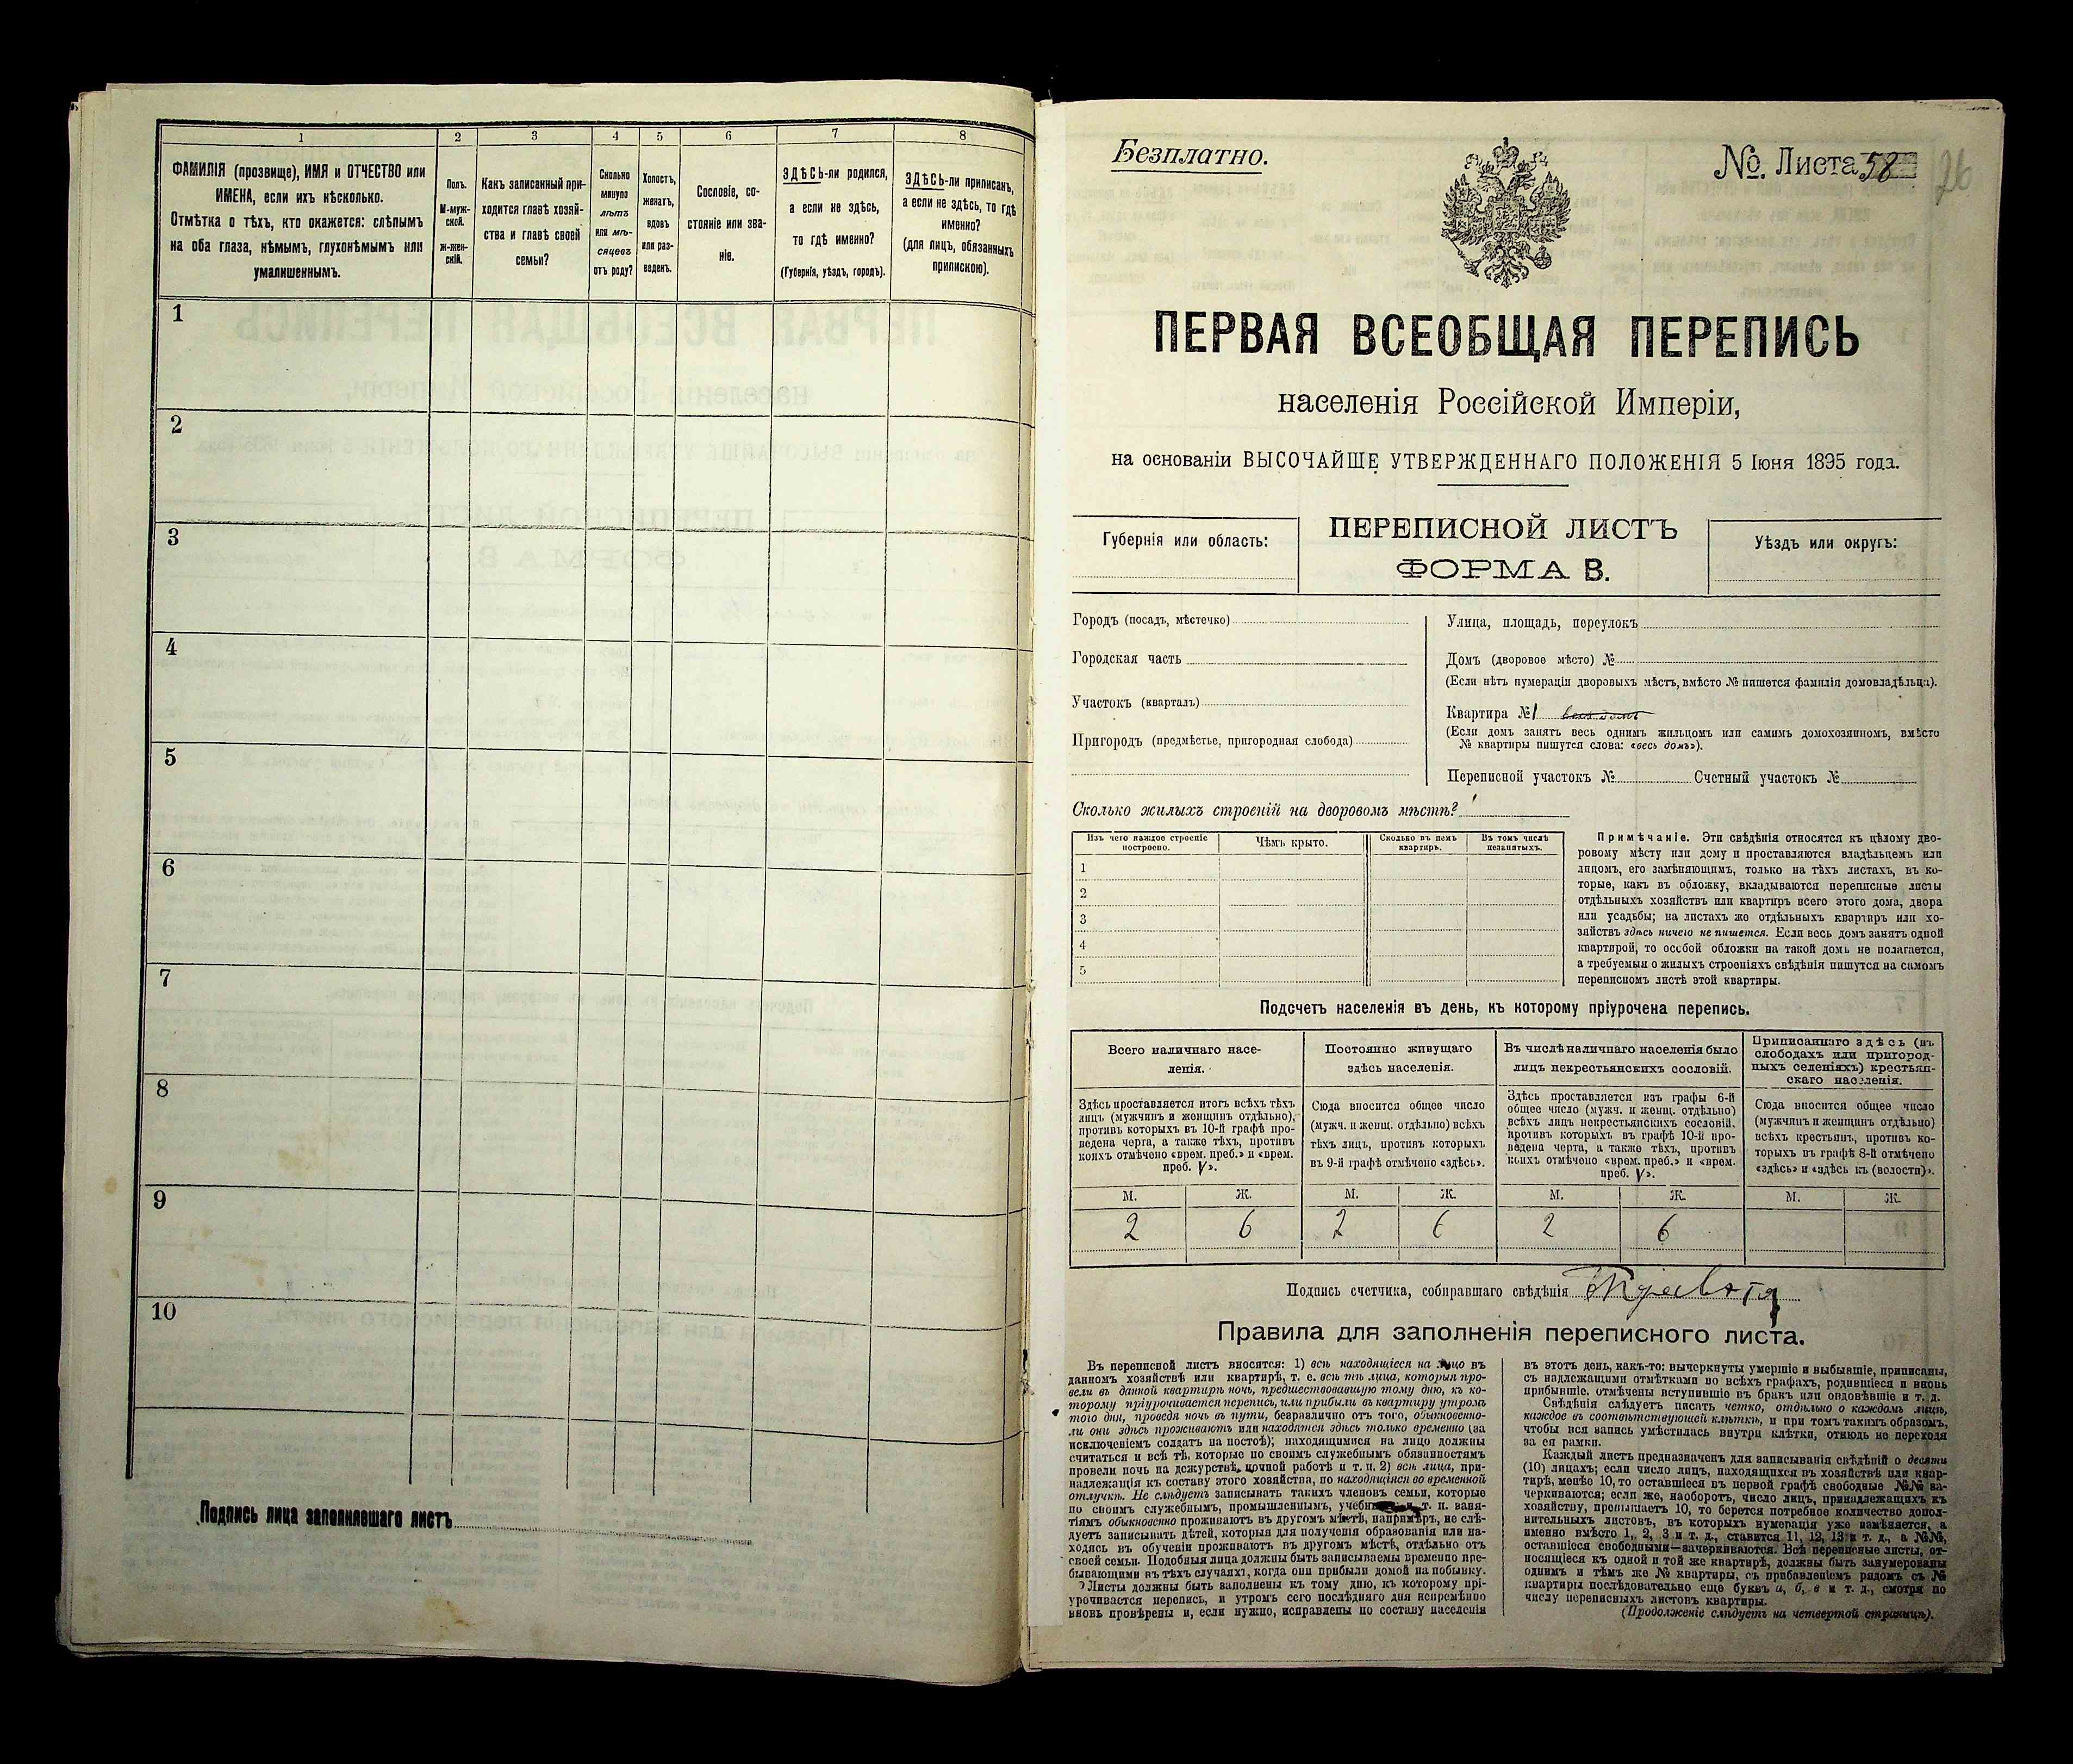 1
2
3
4
5
6
7
8
ФАМИЛІЯ (прозвище), ИМЯ и ОТЧЕСТВО или
ИМЕНА, если ихъ нѣсколько.
Отмѣтка о тѣхъ, кто окажется: слѣпымъ
на оба глаза, нѣмымъ, глухонѣмымъ или
умалишеннымъ.
Полъ.
М-муж-
ской.
ж-жен-
скій.
Какъ записанный при-
ходится главѣ хозяй-
ства и главѣ своей
семьи?
Сколько
минуло
лѣтъ
или мѣ-
сяцевъ
отъ роду?
Холостъ,
женатъ,
вдовъ
или раз-
веденъ.
Сословіе, со-
стояніе или зва-
ніе.
ЗДѢСЬ-ли родился,
а если не здѣсь,
то гдѣ именно?
(Губернія, уѣздъ, городъ).
ЗДѢСЬ-ли приписанъ,
а если не здѣсь, то гдѣ
именно?
(для лицъ, обязанныхъ
припискою).
1
2
3
4
5
6
7
8
9
10
Подпись лица заполнявшаго листъ
Безплатно.
№. Листа 58
26
ПЕРВАЯ ВСЕОБЩАЯ ПЕРЕПИСЬ
населенія Россійской Имперіи,
на основаніи ВЫСОЧАЙШЕ УТВЕРЖДЕННАГО ПОЛОЖЕНІЯ 5 Іюня 1895 года.
Губернія или область:
ПЕРЕПИСНОЙ ЛИСТЪ
ФОРМА В.
Уѣздъ или округъ:
Городъ (посадъ, мѣстечко)
Городская часть
Участокъ (кварталъ)
Пригородъ (предмѣстье, пригородная слобода)
Улица, площадь, переулокъ
Домъ (дворовое мѣсто) №
(Если нѣтъ нумераціи дворовыхъ мѣстъ, вмѣсто № пишется фамилія домовладѣльца).
Квартира № 1 весь домъ
(Если домъ занятъ весь однимъ жильцомъ или самимъ домохозяиномъ, вмѣсто
№ квартиры пишутся слова: «весь домъ»).
Переписной участокъ № Счетный участокъ №
Сколько жилыхъ строеній на дворовомъ мѣстѣ?
Изъ чего каждое строеніе
построено.
Чѣмъ крыто.
Сколько въ немъ
квартиръ.
Въ томъ числѣ
незанятыхъ.
1
2
3
4
5
Примѣчаніе. Эти свѣдѣнія относятся къ цѣлому дво-
ровому мѣсту или дому и проставляются владѣльцемъ или
лицомъ, его замѣняющимъ, только на тѣхъ листахъ, въ ко-
торые, какъ въ обложку, вкладываются переписные листы
отдѣльныхъ хозяйствъ или квартиръ всего этого дома, двора
или усадьбы; на листахъ же отдѣльныхъ квартиръ или хо-
зяйствъ здѣсь ничего не пишется. Если весь домъ занятъ одной
квартирой, то особой обложки на такой домъ не полагается,
а требуемыя о жилыхъ строеніяхъ свѣдѣнія пишутся на самомъ
переписномъ листѣ этой квартиры.
Подсчетъ населенія въ день, къ которому пріурочена перепись.
Всего наличнаго насе-
ленія.
Постоянно живущаго
здѣсь населенія.
Въ числѣ наличнаго населенія было
лицъ некрестьянскихъ сословій.
Приписаннаго здѣсь (въ
слободахъ или пригород-
ныхъ селеніяхъ) крестьян-
скаго населенія.
Здѣсь проставляется итогъ всѣхъ тѣхъ
лицъ (мужчинъ и женщинъ отдѣльно),
противъ которыхъ въ 10-й графѣ про-
ведена черта, а также тѣхъ, противъ
коихъ отмѣчено «врем. преб.» и «врем.
преб. V».
Сюда вносится общее число
(мужч. и женщ. отдѣльно) всѣхъ
тѣхъ лицъ, противъ которыхъ
въ 9-й графѣ отмѣчено «здѣсь».
Здѣсь проставляется изъ графы 6-й
общее число (мужч. и женщ. отдѣльно)
всѣхъ лицъ некрестьянскихъ сословій,
противъ которыхъ въ графѣ 10-й про-
ведена черта, а также тѣхъ, противъ
коихъ отмѣчено «врем. преб.» и «врем.
преб. V».
Сюда вносится общее число
(мужчинъ и женщинъ отдѣльно)
всѣхъ крестьянъ, противъ ко-
торыхъ въ графѣ 8-й отмѣчено
«здѣсь» и «здѣсь къ (волости)».
М. Ж. М. Ж. М. Ж. М. Ж.
2 6 2 6 2 6
Подпись счетчика, собиравшаго свѣдѣнія
Правила для заполненія переписного листа.
Въ переписной листъ вносятся: 1) всѣ находящіеся на лицо въ
данномъ хозяйствѣ или квартирѣ, т. е. всѣ тѣ лица, которыя про-
вели въ данной квартирѣ ночь, предшествовавшую тому дню, къ ко-
торому пріурочивается перепись, или прибыли въ квартиру утромъ
того дня, проведя ночь въ пути, безразлично отъ того, обыкновенно-
ли они здѣсь проживаютъ или находятся здѣсь только временно (за
исключеніемъ солдатъ на постоѣ); находящимися на лицо должны
считаться и всѣ тѣ, которые по своимъ служебнымъ обязанностямъ
провели ночь на дежурствѣ, ночной работѣ и т. п. 2) всѣ лица, при-
надлежащія къ составу этого хозяйства, но находящіяся во временной
отлучкѣ. Не слѣдуетъ записывать такихъ членовъ семьи, которые
по своимъ служебнымъ, промышленнымъ, т. п. заня-
тіямъ обыкновенно проживаютъ въ другомъ мѣстѣ, напримѣръ, не слѣ-
дуетъ записывать дѣтей, которыя для полученія образованія или на-
ходясь въ обученіи проживаютъ въ другомъ мѣстѣ, отдѣльно отъ
своей семьи. Подобныя лица должны быть записываемы временно пре-
бывающими въ тѣхъ случаяхъ, когда они прибыли домой на побывку.
Листы должны быть заполнены къ тому дню, къ которому прі-
урочивается перепись, и утромъ сего послѣдняго дня непремѣнно
вновь провѣрены и, если нужно, исправлены по составу населенія
въ этотъ день, какъ-то: вычеркнуты умершіе и выбывшіе, приписаны,
съ надлежащими отмѣтками во всѣхъ графахъ, родившіеся и вновь
прибывшіе, отмѣчены вступившіе въ бракъ или овдовѣвшіе и т. д.
Свѣдѣнія слѣдуетъ писать четко, отдѣльно о каждомъ лицѣ,
каждое въ соотвѣтствующей клѣткѣ, и при томъ такимъ образомъ,
чтобы вся запись умѣстилась внутри клѣтки, отнюдь не переходя
за ея рамки.
Каждый листъ предназначенъ для записыванія свѣдѣній о десяти
(10) лицахъ; если число лицъ, находящихся въ хозяйствѣ или квар-
тирѣ, менѣе 10, то оставшіеся въ первой графѣ свободные №№ за-
черкиваются; если же, наоборотъ, число лицъ, принадлежащихъ къ
хозяйству, превышаетъ 10, то берется потребное количество допол-
нительныхъ листовъ, въ которыхъ нумерація уже измѣняется, а
именно вмѣсто 1, 2, 3 и т. д., ставится 11, 12, 13 и т. д., а №№,
оставшіеся свободными—зачеркиваются. Всѣ переписные листы, от-
носящіеся къ одной и той же квартирѣ, должны быть занумерованы
однимъ и тѣмъ же № квартиры, съ прибавленіемъ рядомъ съ №
квартиры послѣдовательно еще буквъ а, б, в и т. д., смотря по
числу переписныхъ листовъ квартиры.
(Продолженіе слѣдуетъ на четвертой страницѣ).